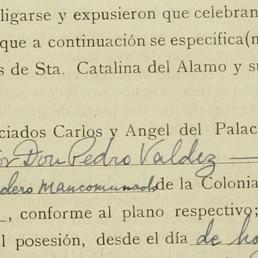 ligarse y expusieron que celebran
que a continuación se especifica(n
s de Sta. Catalina del Alamo y su
ciados Carlos y Angel del Palac
or Don Pedro Valdez
dero Mancomunado de la Colonia
, conforme al plano respectivo;
l posesión, desde el día de ho